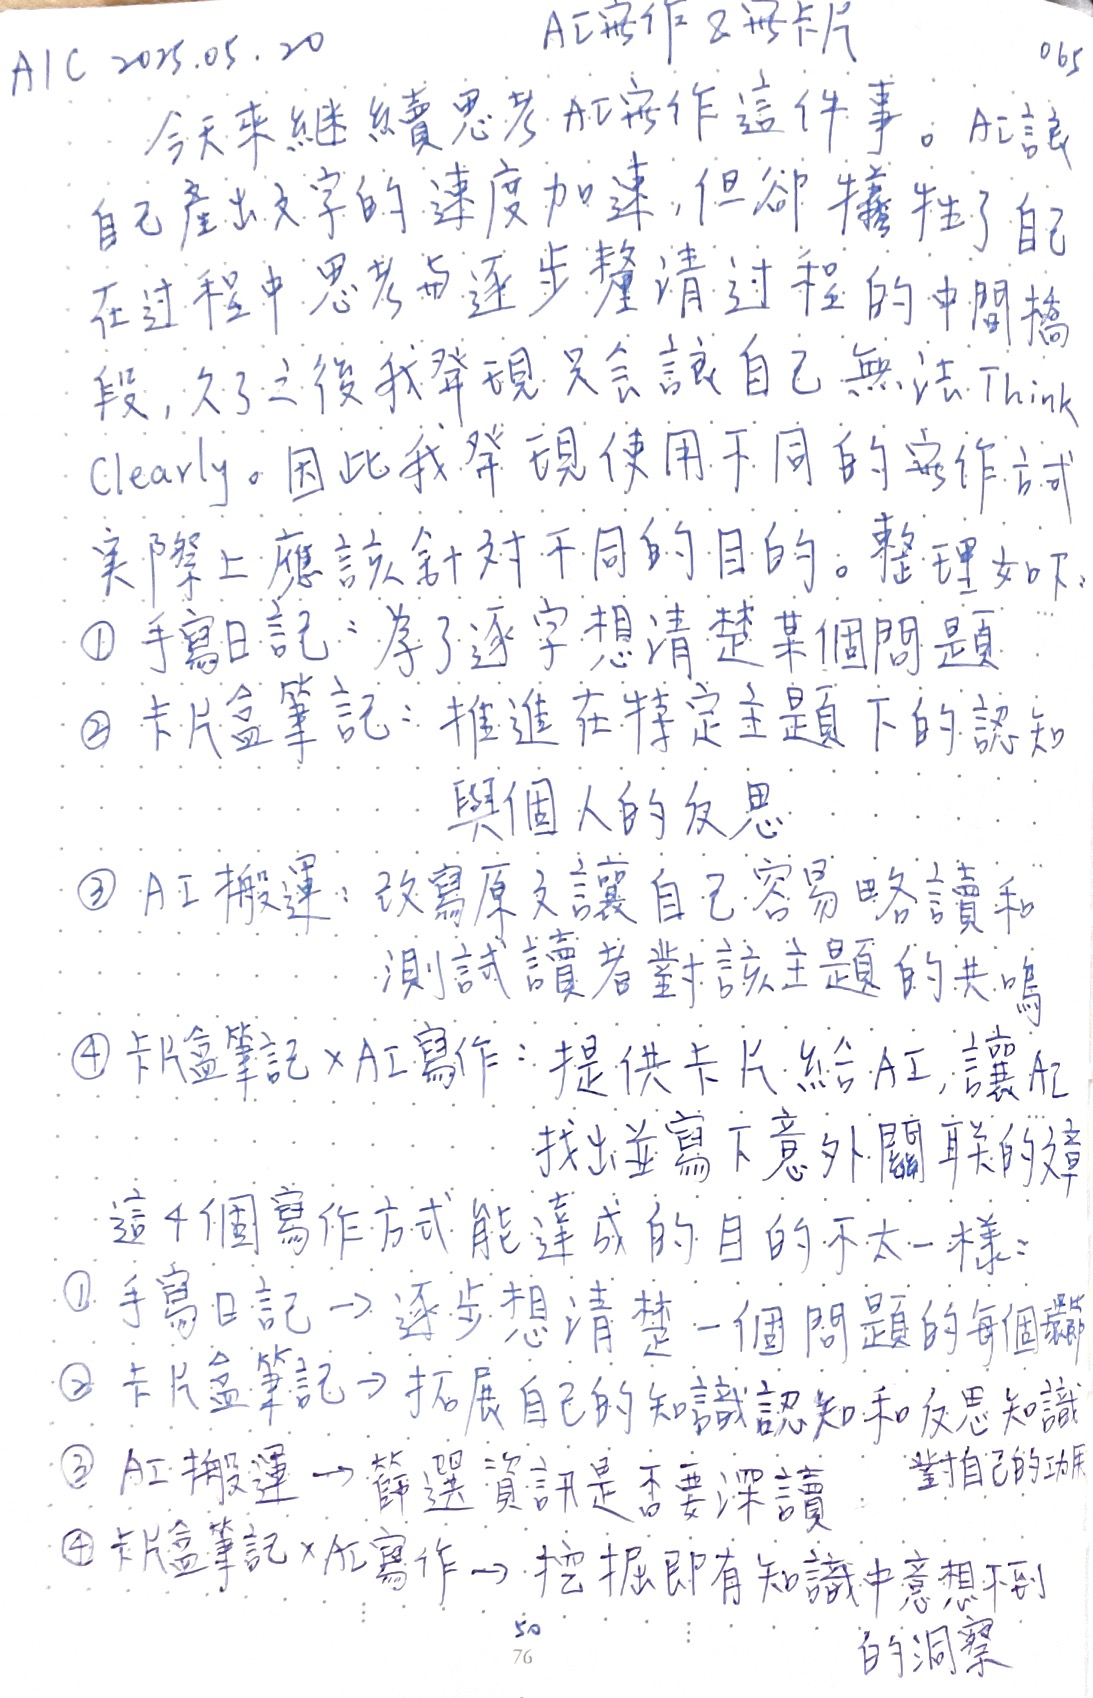 AIC 2025.05.20
AI寫作 & 寫卡片
065
今天來繼續思考AI寫作這件事。AI讓
自己產出文字的速度加速,但卻犧牲了自己
在过程中思考与逐步釐清过程的中間橋
段,久了之後我發現只会讓自己無法Think
Clearly。因此我發現使用不同的寫作方式
実際上應該針对不同的目的。整理如下:
① 手寫日記:為了逐字想清楚某個問題
② 卡片盒筆記:推進在特定主題下的認知
與個人的反思
③ AI搬運:改寫原文讓自己容易略讀和
測試讀者對該主題的共鳴
④ 卡片盒筆記×AI寫作:提供卡片給AI,讓AI
找出並寫下意外關联的文章
這4個寫作方式能達成的目的不太一樣:
① 手寫日記→逐步想清楚一個問題的每個環節
② 卡片盒筆記→拓展自己的知識認知和反思知識
對自己的功用
③ AI搬運→篩選資訊是否要深讀
④ 卡片盒筆記×AI寫作→挖掘即有知識中意想不到
的洞察
50
76